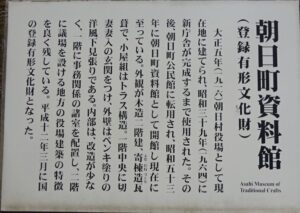 朝日町資料館
(登録有形文化財)
Asahi Museum of
Traditional Crafts
大正五年(一九一六)朝日村役場として現
在地に建てられ、昭和三十九年(一九六四)に
新庁舎が完成するまで使用された。その
後、朝日町公民館に転用され、昭和五十三
年に朝日町資料館として開館し現在に
至っている。外観が木造二階建、寄棟造瓦
葺で、小屋組はトラス構造、二階中央に切
妻妻入の玄関をつけ、外壁はペンキ塗りの
洋風下見張りである。内部は、改造が少な
く、一階に事務関係の諸室を配置し、二階
に議場を設ける地方の役場建築の特徴
を良く残している。平成十二年三月に国
の登録有形文化財となった。